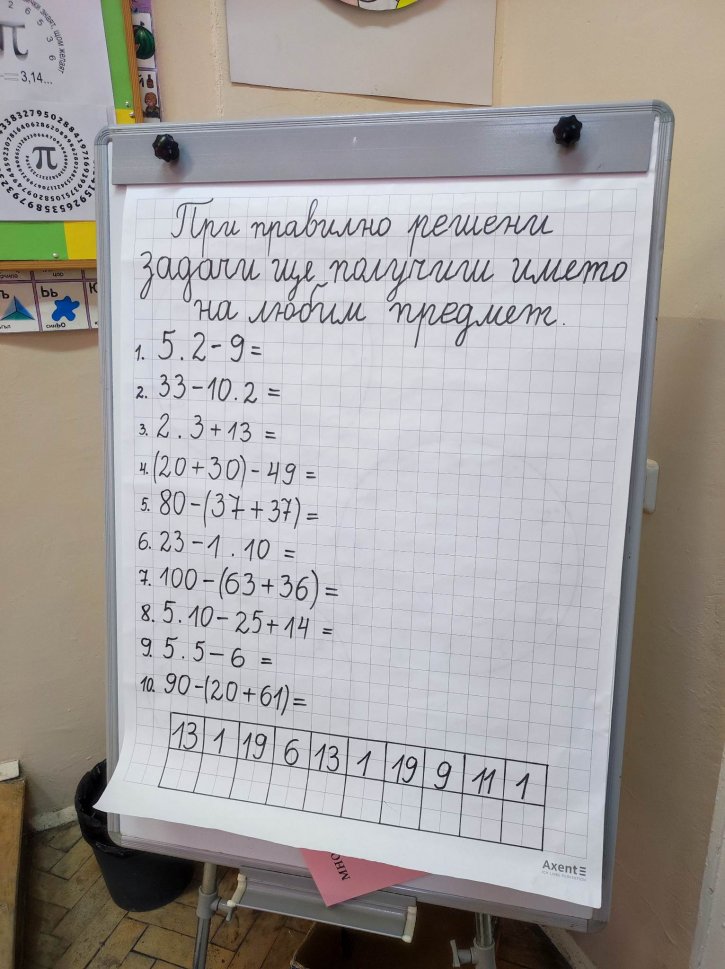 3,14...
π
При правилно решени
задачи ще получиш името
на любим предмет.
1. 5.2-9=
2. 33-10.2 =
3. 2.3+13 =
4. (20+30)-49 =
5. 80-(37+37)=
6. 23-1.10 =
7. 100-(63+36)=
8. 5.10-25+14 =
9. 5.5-6 =
10. 90-(20+61)=
13 1 19 6 13 1 19 9 11 1
Axent
МНО